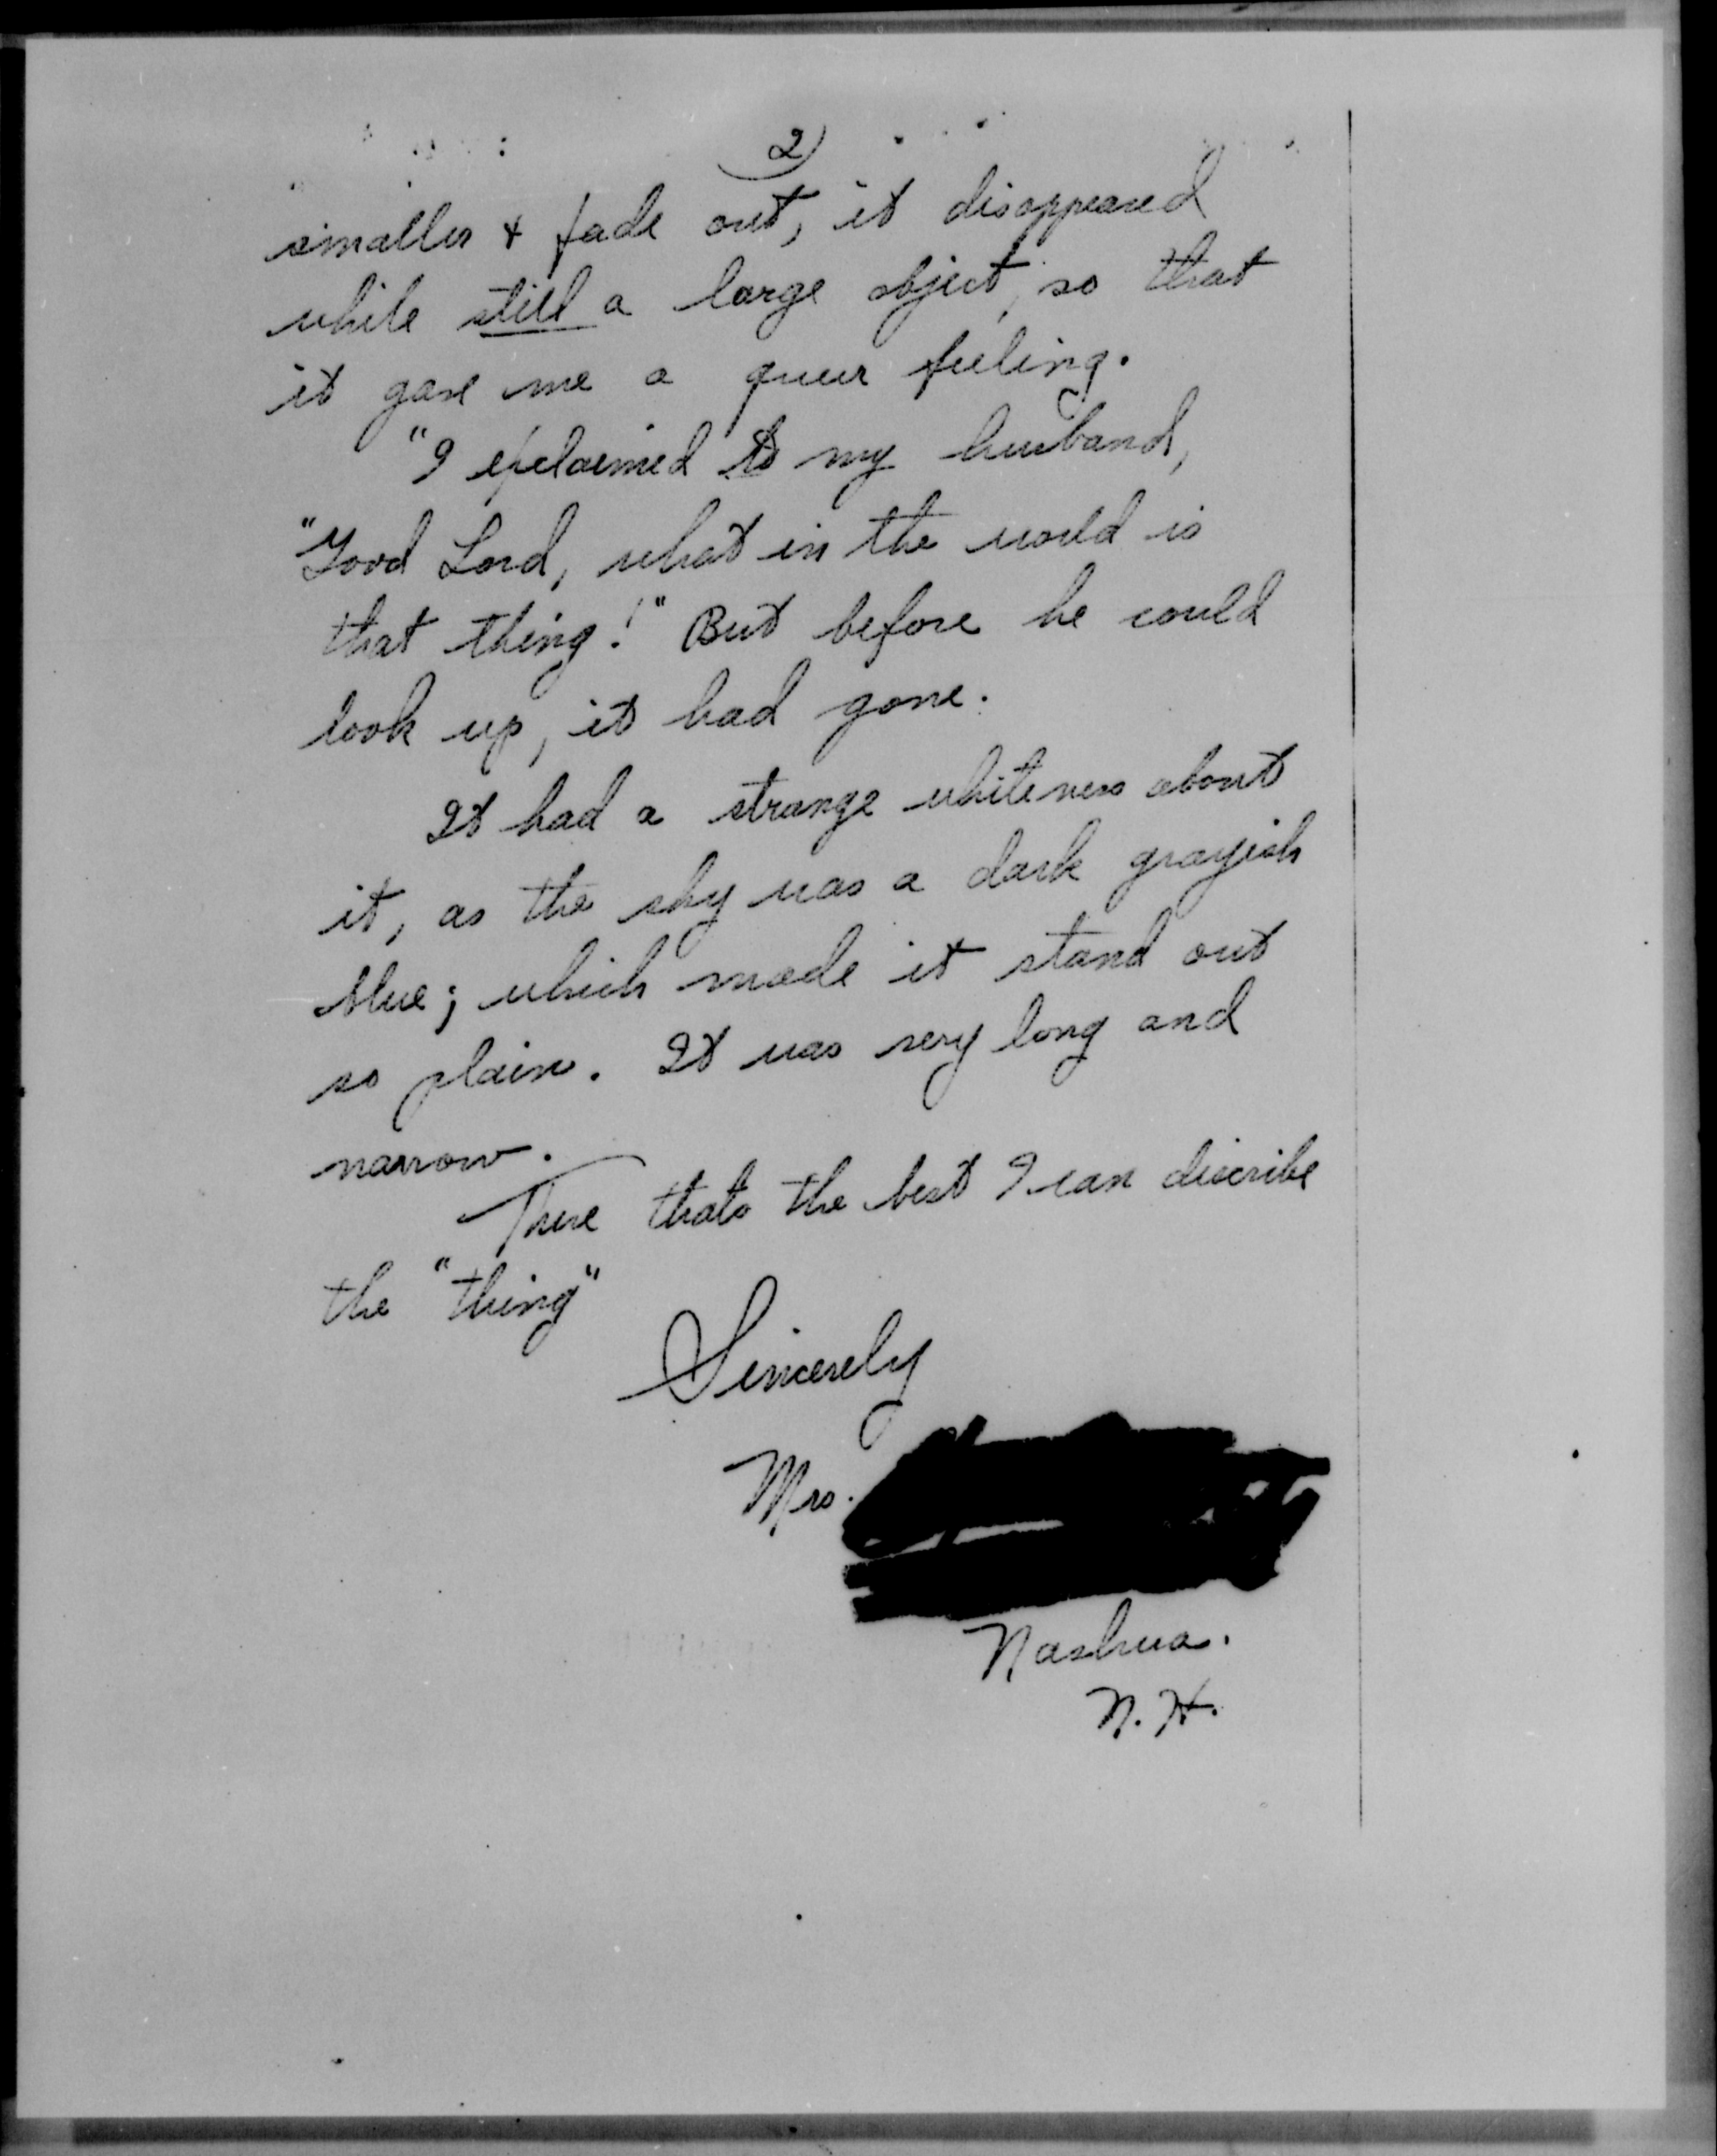 2)
smaller & fade out, it disappeared
while still a large object, so that
it gave me a queer feeling.
"I exclaimed to my husband,
"Good Lord, what in the world is
that thing!" But before he could
look up, it had gone.
It had a strange whiteness about
it, as the sky was a dark grayish
blue; which made it stand out
so plain. It was very long and
narrow.
There thats the best I can discribe
the "thing"
Sincerely
Mrs.
Nashua.
N.H.